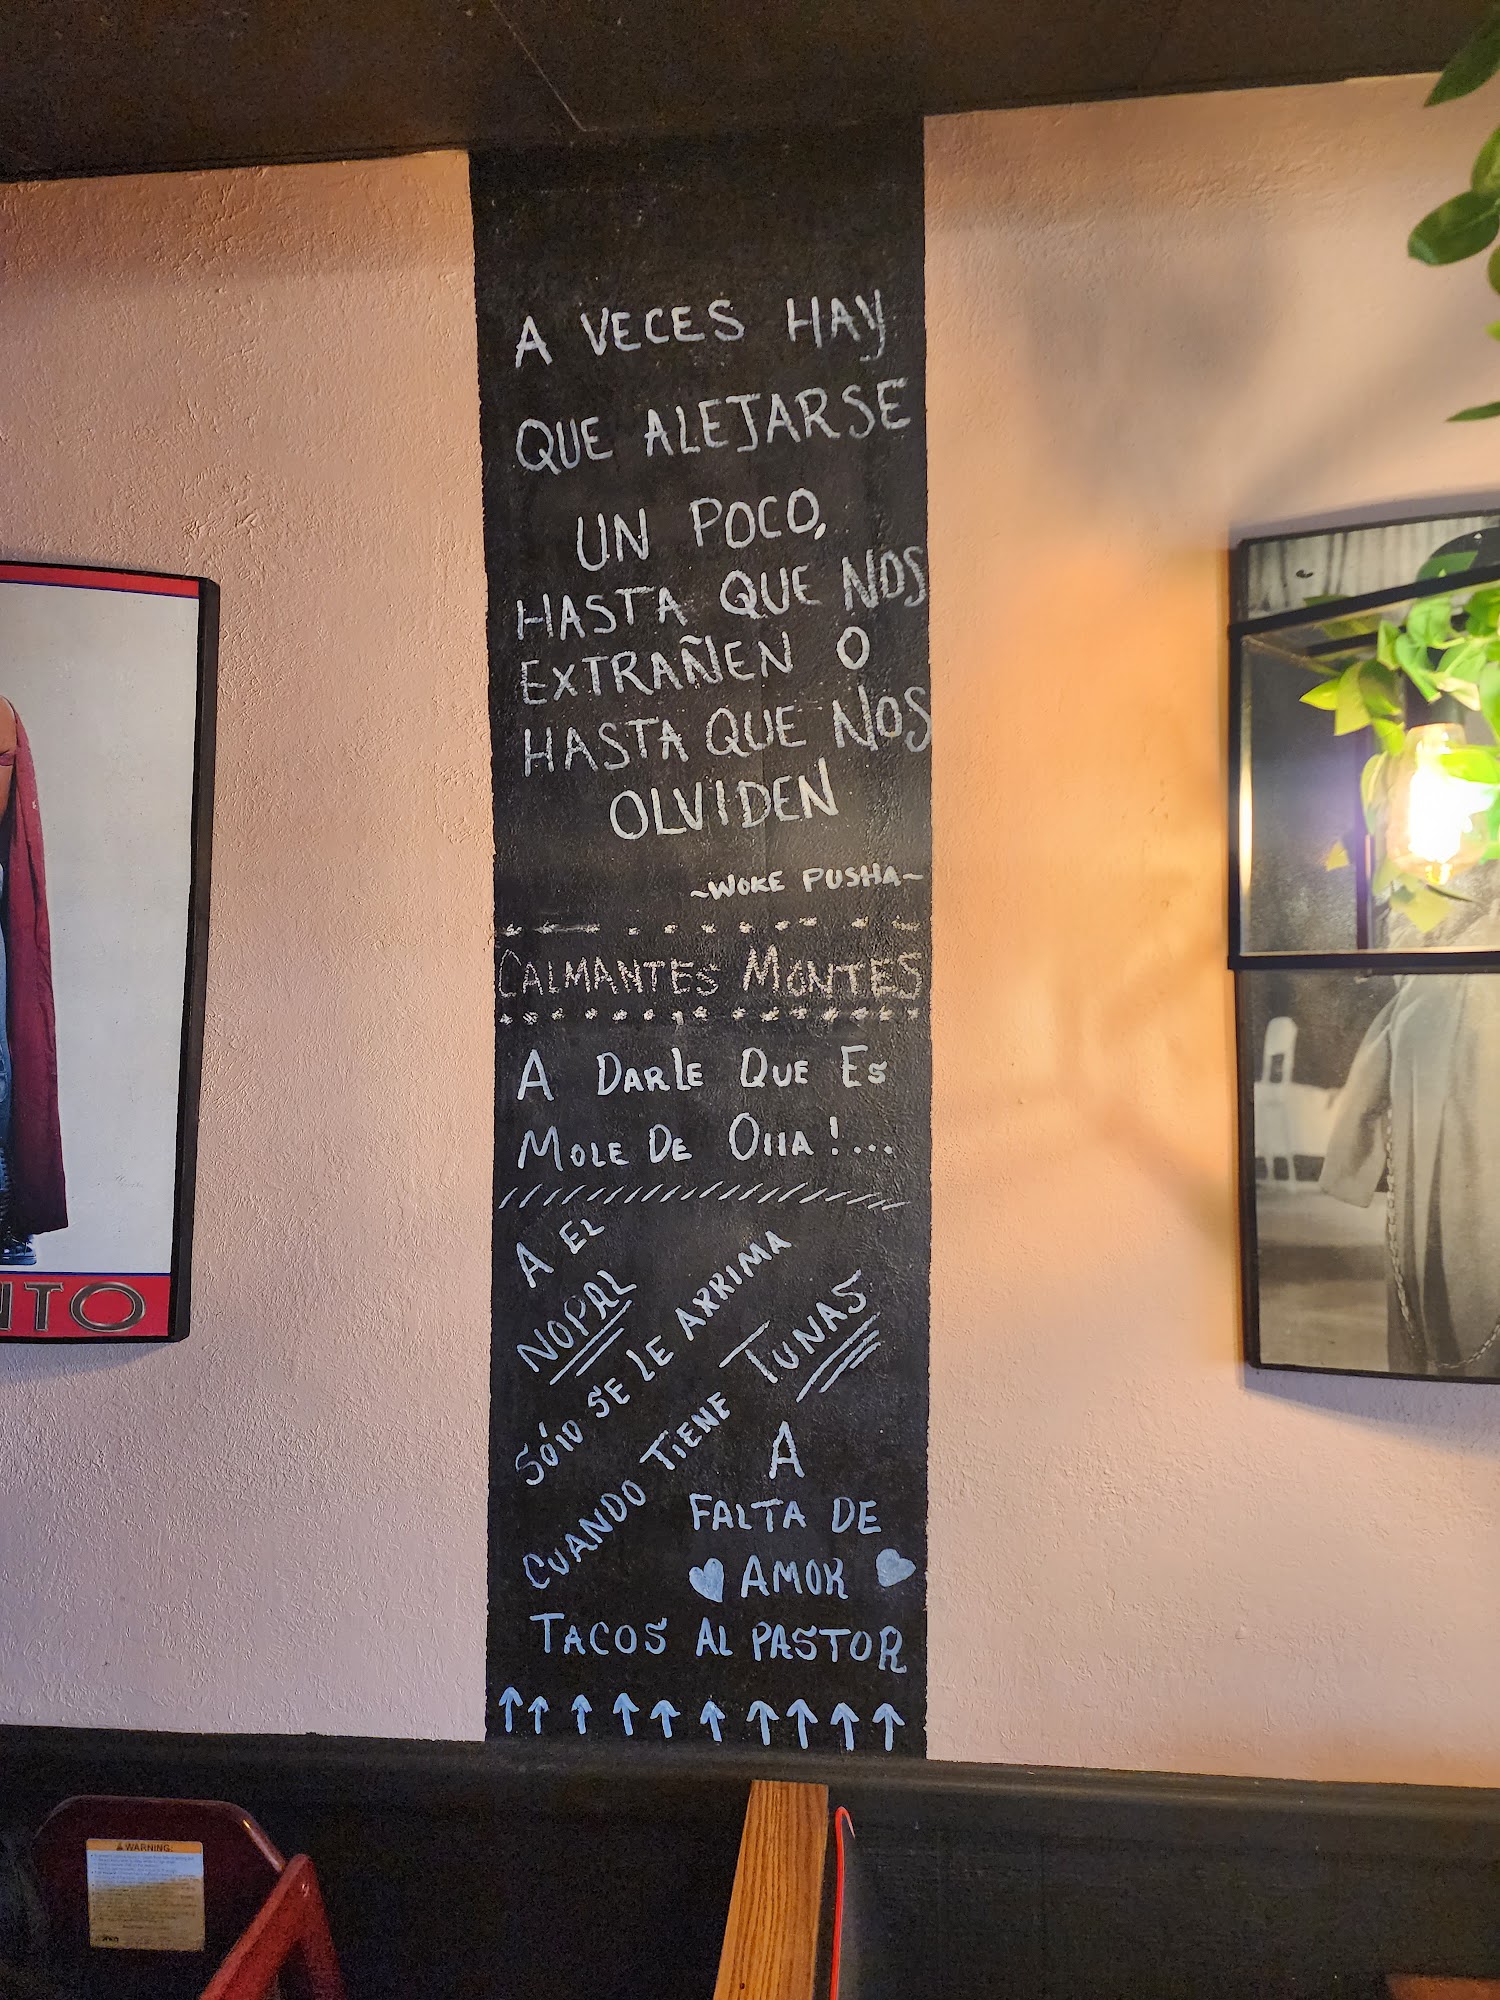 A VECES HAY
QUE ALEJARSE
UN POCO,
HASTA QUE NOS
EXTRAÑEN O
HASTA QUE NOS
OLVIDEN
~WOKE PUSHA~
CALMANTES MONTES
A DARLE QUE ES
MOLE DE OllA!...
A EL
NOPAL
SÓlO SE LE ARRIMA
CUANDO TIENE TUNAS
A
FALTA DE
AMOR
TACOS AL PASTOR
NTO
WARNING: